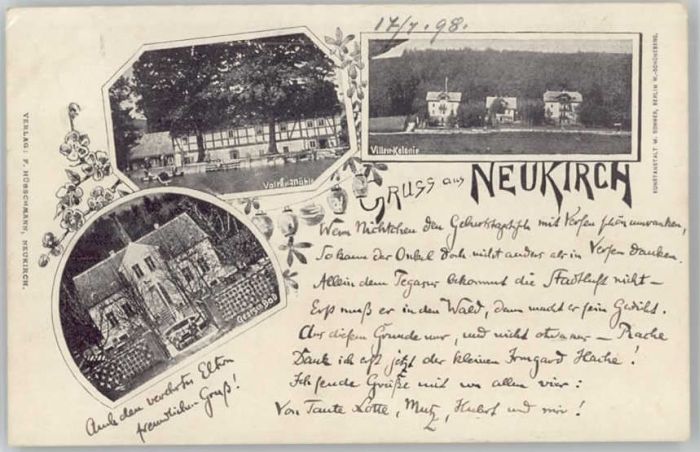 17/7. 98.
Valtenmühle
Villen-Kolonie
Georgenbad
GRUSS aus NEUKIRCH
VERLAG: F. HÜBSCHMANN, NEUKIRCH.
KUNSTANSTALT W. SOMMER, BERLIN W.-SCHÖNEBERG.
Wenn Nichtchen den Geburtstagstisch mit Versen schön umranken,
So kann der Onkel doch nicht anders als in Versen danken.
Allein dem Pegasus bekommt die Stadtluft nicht –
Erst muß er in den Wald, dann macht er sein Gedicht.
Aus diesem Grunde nur, und nicht etwa aus – Rache
Dank ich erst jetzt der kleinen Irmgard Hache!
Ich sende Grüße mit von allen vier:
Von Tante Lotte, Mutz, Hubert und mir!
Auch den verehrten Eltern
freundlichen Gruß!